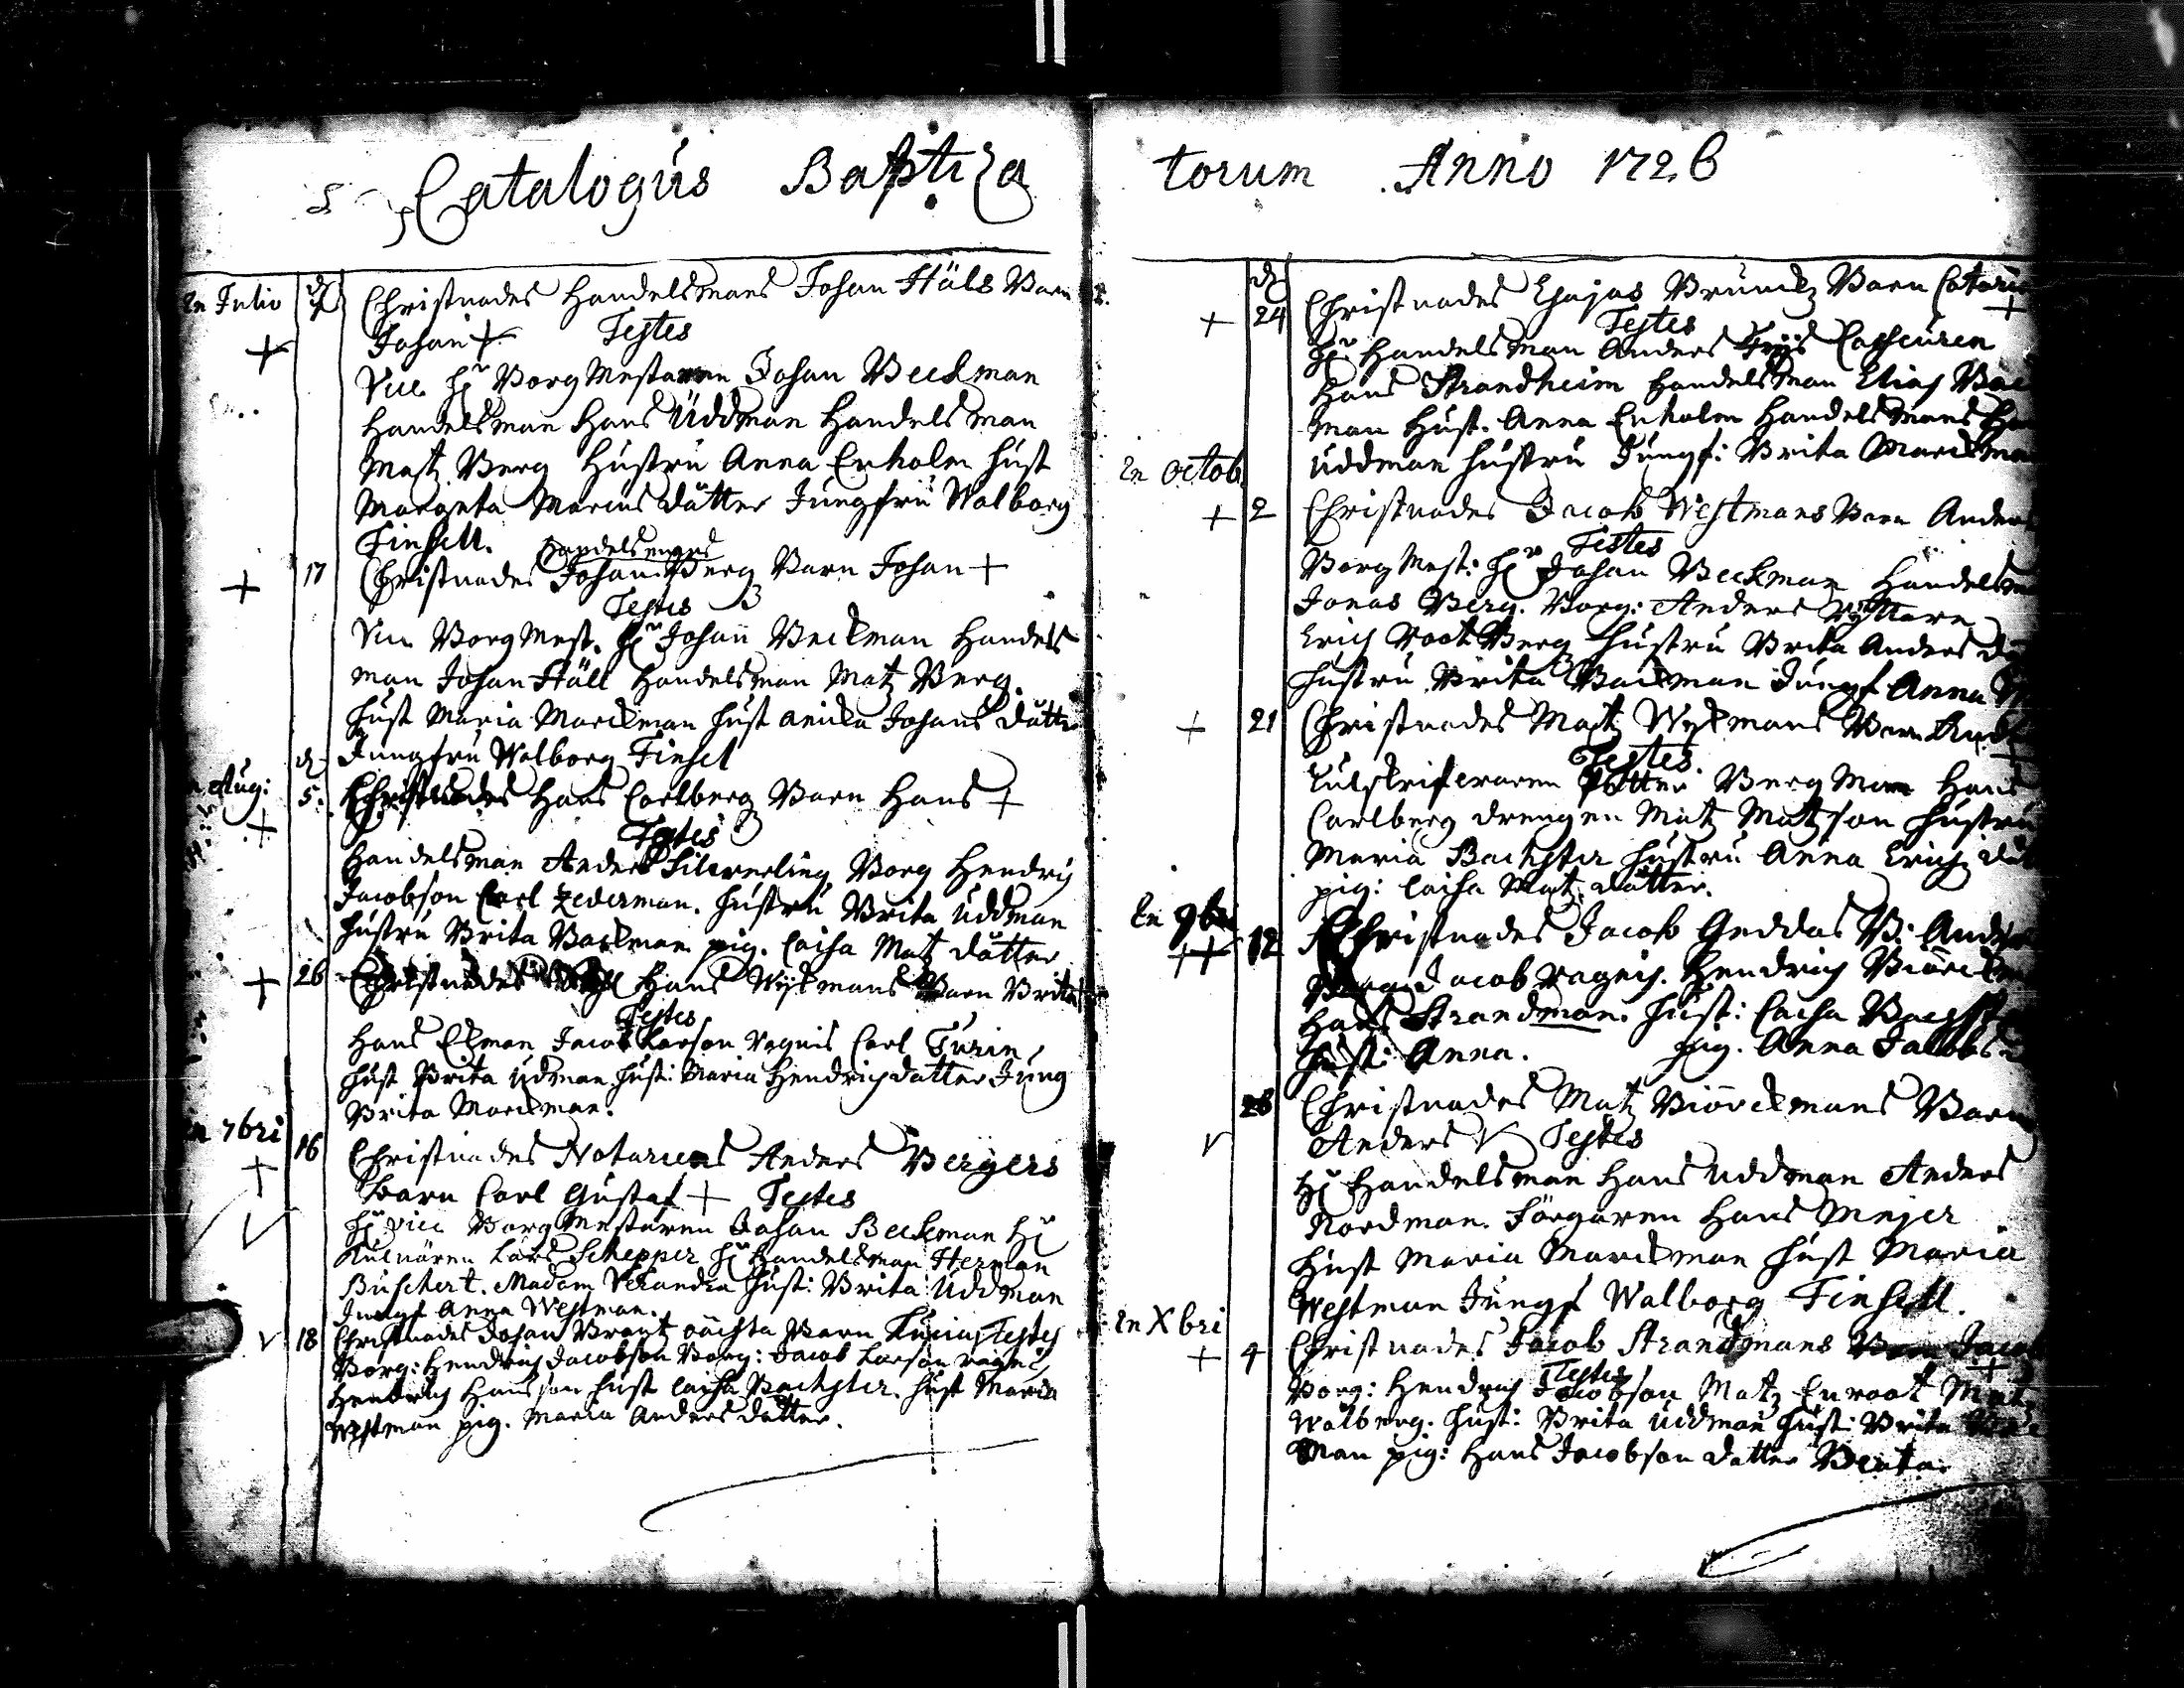 Catalogus Baptiza
In Julio
d 7 Christnades Handelsmans Johan Ståls Barn
+ Johan + Testes
Vice Hr BorgMestaren Johan Beckman
Handelsman Hans Uddman Handelsman
Matz Berg Hustru Anna Enholm Hust
Margeta Marcus dåtter Jungfru Walborg
Finsell.
Handelsmans
+ 17 Christnades Johan Berg Barn Johan +
Testes
Vice BorgMest. Hr Johan Beckman Handels
man Johan Ståll Handelsman Matz Berg.
Hust Maria Marckman Hust Anicka Johans dåtter
Jungfru Walborg Finsel
Aug: d
+ 5. Christnades Hans Carlberg Barn Hans +
Testes
Handelsman Anders Borg Hendrich
Jacobson Carl Zederman. Hustru Brita Uddman
Hustru Brita Backman pig. Caisa Matz dåtter
+ 26 Christnades Hans Wijkmans Barn Brita
Testes
Hans Ekman Jacob Larson Ragnis Carl Turin
Hust Brita Udman Hust: Maria Hendrichdatter Jung
Brita Marckman.
7bri
+ 16 Christnades Notariens Anders Bergers
Barn Carl Gustaf + Testes
Hr Vice BorgMestaren Johan Beckman Hr
Lars Schepper Hr Handelsman Herman
Buschert. Madam Hust: Brita Uddman
Jungf Anna Westman.
18 Christnades Johan Brantz Barn Testes
Borg: Hendrich Jacobson Borg: Jacob Larson Ragnis
Hendrich Hansson Hust Caisa Bachster. Hust Maria
Westman pig. Maria Anders dotter.
torum Anno 1726
d
+ 24 Christnades Esajas Brunckz Barn Catarin
Testes +
Hr Handelsman Anders
Hans Strandheim Handelsman Elias Bac
man Hust. Anna Enholm Handelsmans
Uddman Hustru Jungf: Brita Marckman
In Octob.
+ 2 Christnades Jacob Westmans Barn Anders
Testes
BorgMest: Hr Johan Beckman Handelsm
Jonas Berg. Borg: Anders
Erich Hustru Brita Anders
Hustru Brita Backman Jungf Anna
+ 21 Christnades Matz Wykmans Barn
Testes.
Petter BergMan Hans
Carlberg drengen Matz Matzson Hustru
Maria Bachster Hustru Anna Erich
pig: Caisa Matz dåtter.
In 9bri
++ 12 Christnades Jacob Geddas B: Anders
Jacob Ragnis. Hendrich Biörckman
Hans Strandman. Hust: Caisa
Hust: Anna. pig. Anna Jacobs
28 Christnades Matz Biörckmans Barn
Anders Testes
Hr Handelsman Hans Uddman Anders
Nordman. Färgaren Hans Mejer
Hust Maria Marckman Hust Maria
Westman Jungf Walborg Finsell.
In Xbri
+ 4 Christnades Jacob Strandmans Barn Jacob
Testes +
Borg: Hendrich Jacobson Matz Enroot Matz
Walberg. Hust: Brita Uddman Hust: Brita
Man pig: Hans Jacobson datter Beata.